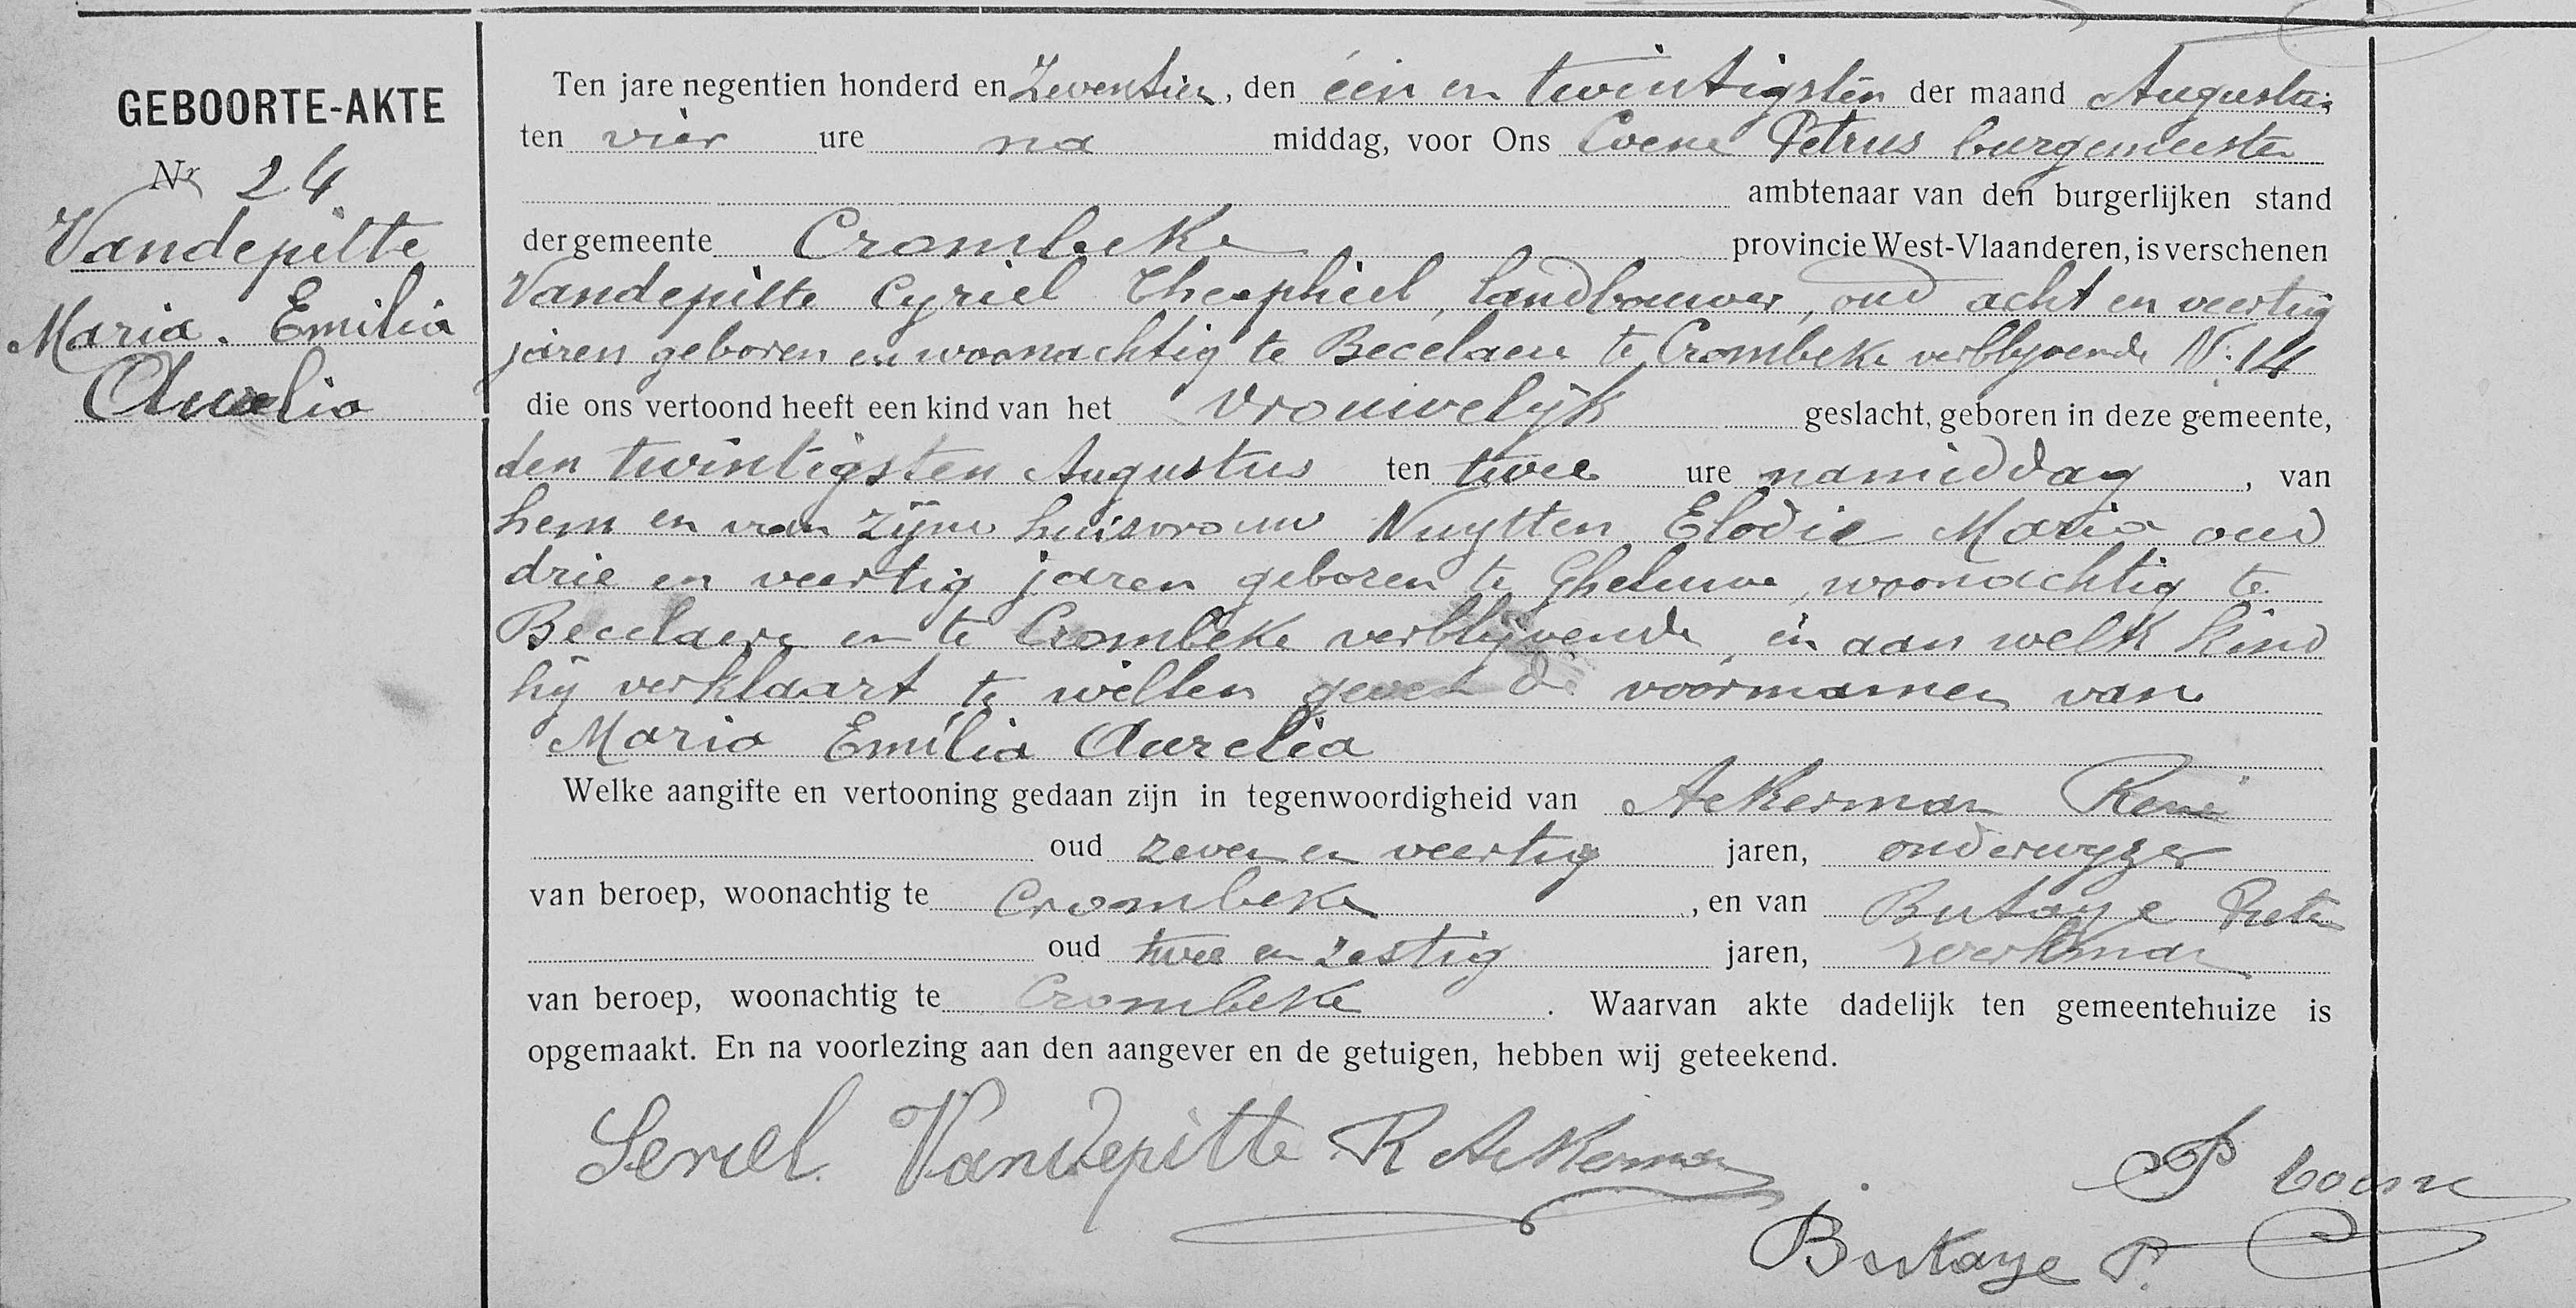 GEBOORTE-AKTE
Nr 24
Vandepitte
Maria. Emilia
Aurelia
Ten jare negentien honderd en Zeventien, den één en twintigsten der maand Augustus
ten vier ure na middag, voor Ons Coene Petrus burgemeester
ambtenaar van den burgerlijken stand
der gemeente Crombeke provincie West-Vlaanderen, is verschenen
Vandepitte Cyriel Theophiel, landbouwer, oud acht en veertig
jaren geboren en woonachtig te Becelaere te Crombeke verblyvende N: 14
die ons vertoond heeft een kind van het vrouwelijk geslacht, geboren in deze gemeente,
den twintigsten Augustus ten twee ure namiddag, van
hem en van zijne huisvrouw Nuytten Elodie Maria oud
drie en veertig jaren geboren te Gheluwe, woonachtig te
Becelaere en te Crombeke verblijvende, en aan welk kind
hij verklaart te willen geven de voornamen van
Maria Emilia Aurelia
Welke aangifte en vertooning gedaan zijn in tegenwoordigheid van Ackerman René
oud zeven en veertig jaren, onderwyzer
van beroep, woonachtig te Crombeke, en van Butaye Pieter
oud twee en zestig jaren, werkman
van beroep, woonachtig te Crombeke. Waarvan akte dadelijk ten gemeentehuize is
opgemaakt. En na voorlezing aan den aangever en de getuigen, hebben wij geteekend.
Seriel Vandepitte R Ackerman
P Coene
Butaye P.